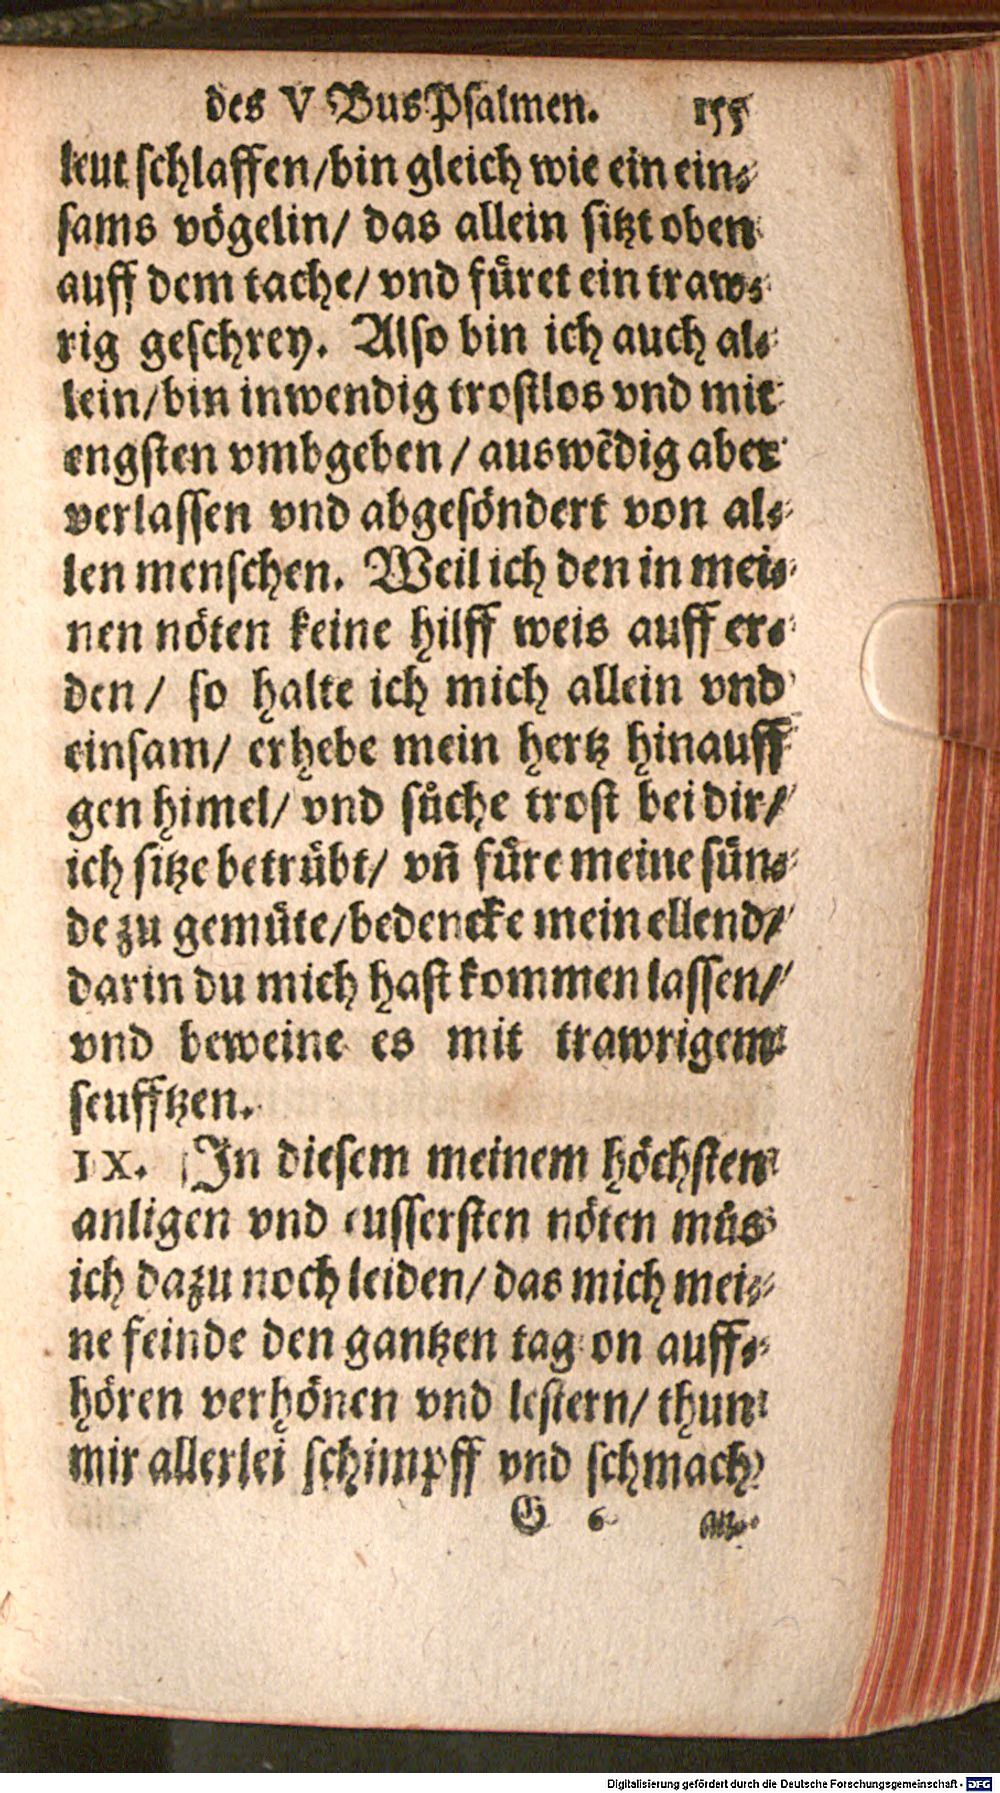 des V BusPsalmen. 155
leut schlaffen/bin gleich wie ein ein⸗
sams vögelin/ das allein sitzt oben
auff dem tache/ vnd füret ein traw⸗
rig geschrey. Also bin ich auch al⸗
lein/bin inwendig trostlos vnd mit
engsten vmbgeben / auswēdig aber
verlassen vnd abgesöndert von al⸗
len menschen. Weil ich den in mei⸗
nen nöten keine hilff weis auff er⸗
den/ so halte ich mich allein vnd
einsam/ erhebe mein hertz hinauff
gen himel/ vnd sůche trost bei dir/
ich sitze betrübt/ vñ füre meine sün⸗
de zu gemüte/bedencke mein ellend/
darin du mich hast kommen lassen/
vnd beweine es mit trawrigem
seufftzen.
IX. In diesem meinem höchsten
anligen vnd eussersten nöten můs
ich dazu noch leiden/ das mich mei⸗
ne feinde den gantzen tag on auff⸗
hören verhönen vnd lestern/ thun
mir allerlei schimpff vnd schmach
G 6
Digitalisierung gefördert durch die Deutsche Forschungsgemeinschaft - DFG